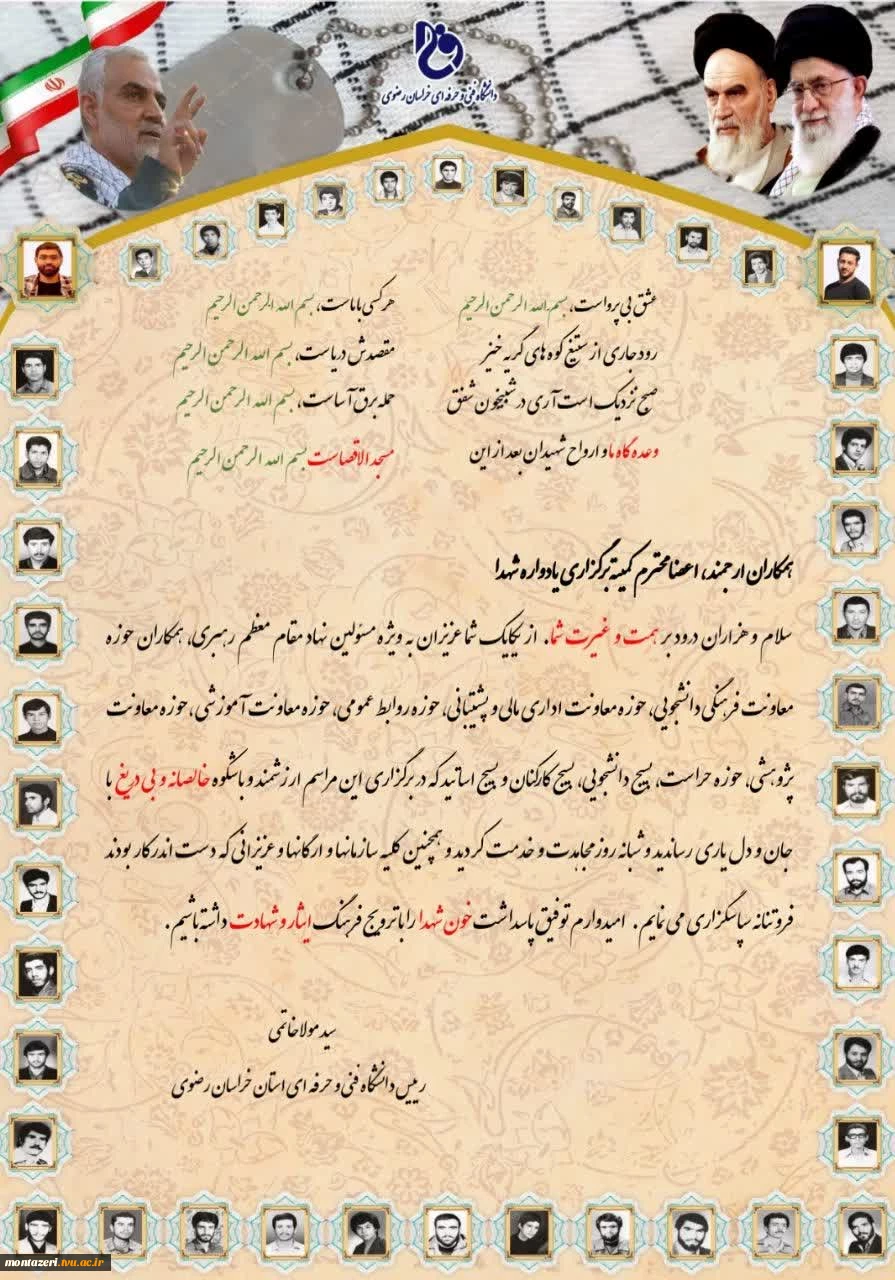 دانشگاه فنی و حرفه ای خراسان رضوی
عشق بی پرواست، بسم الله الرحمن الرحیم
هرکسی باماست، بسم الله الرحمن الرحیم
رود جاری از ستیغ کوه های گریه خیز
مقصدش دریاست، بسم الله الرحمن الرحیم
صبح نزدیک است آری در شبیخون شفق
حمله برق آساست، بسم الله الرحمن الرحیم
وعده گاه ما و ارواح شهیدان بعد از این
مسجد الاقصاست بسم الله الرحمن الرحیم
همکاران ارجمند، اعضا محترم کمیته برگزاری یادواره شهدا
سلام و هزاران درود بر همت و غیرت شما. از یکایک شما عزیزان به ویژه مسئولین نهاد مقام معظم رهبری، همکاران حوزه
معاونت فرهنگی دانشجویی، حوزه معاونت اداری مالی و پشتیبانی، حوزه روابط عمومی، حوزه معاونت آموزشی، حوزه معاونت
پژوهشی، حوزه حراست، بسیج دانشجویی، بسیج کارکنان و بسیج اساتید که در برگزاری این مراسم ارزشمند و باشکوه خالصانه و بی دریغ با
جان و دل یاری رساندید و شبانه روز مجاهدت و خدمت کردید و همچنین کلیه سازمانها و ارگانها و عزیزانی که دست اندرکار بودند
فروتنانه سپاسگزاری می نمایم. امیدوارم توفیق پاسداشت خون شهدا را با ترویج فرهنگ ایثار و شهادت داشته باشیم.
سید مولا خاتمی
رییس دانشگاه فنی و حرفه ای استان خراسان رضوی
montazeri.tvu.ac.ir